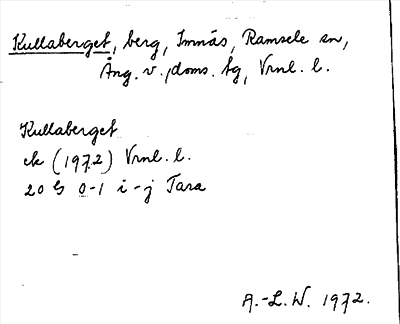 Kullaberget, berg, Imnäs, Ramsele sn,
Ång. v., doms. tg, Vrnl. l.
Kullaberget
ek (1972) Vrnl. l.
20 G 0-1 i-j Tara
A.-L.W. 1972.